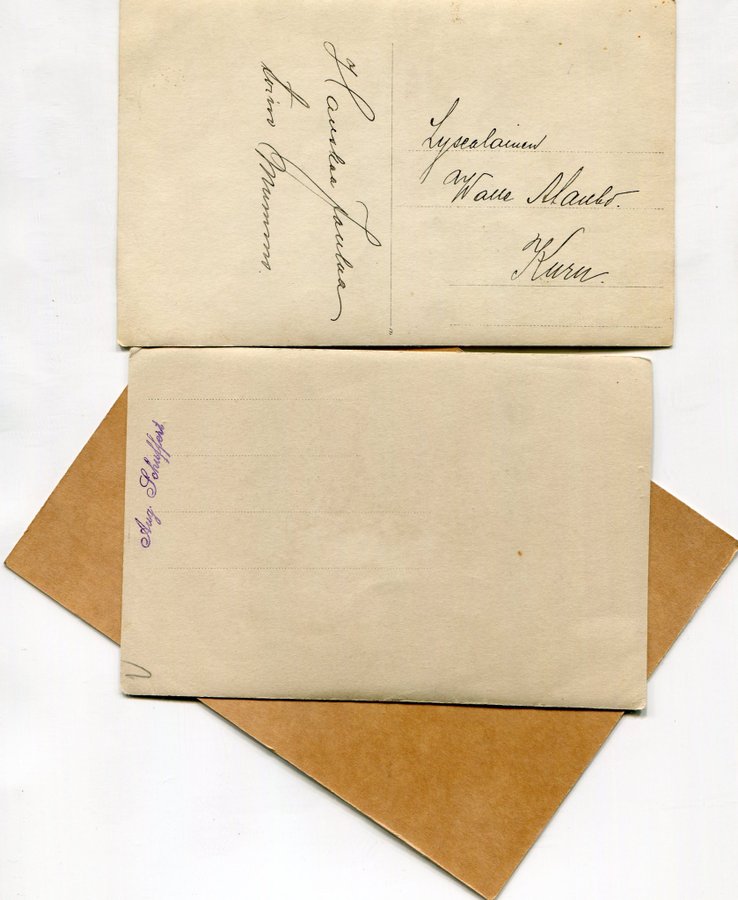 Hauskaa Joulua
toivo Mummo.
Lyseolainen
Alanko.
Kuru.
Aug. Schuffert